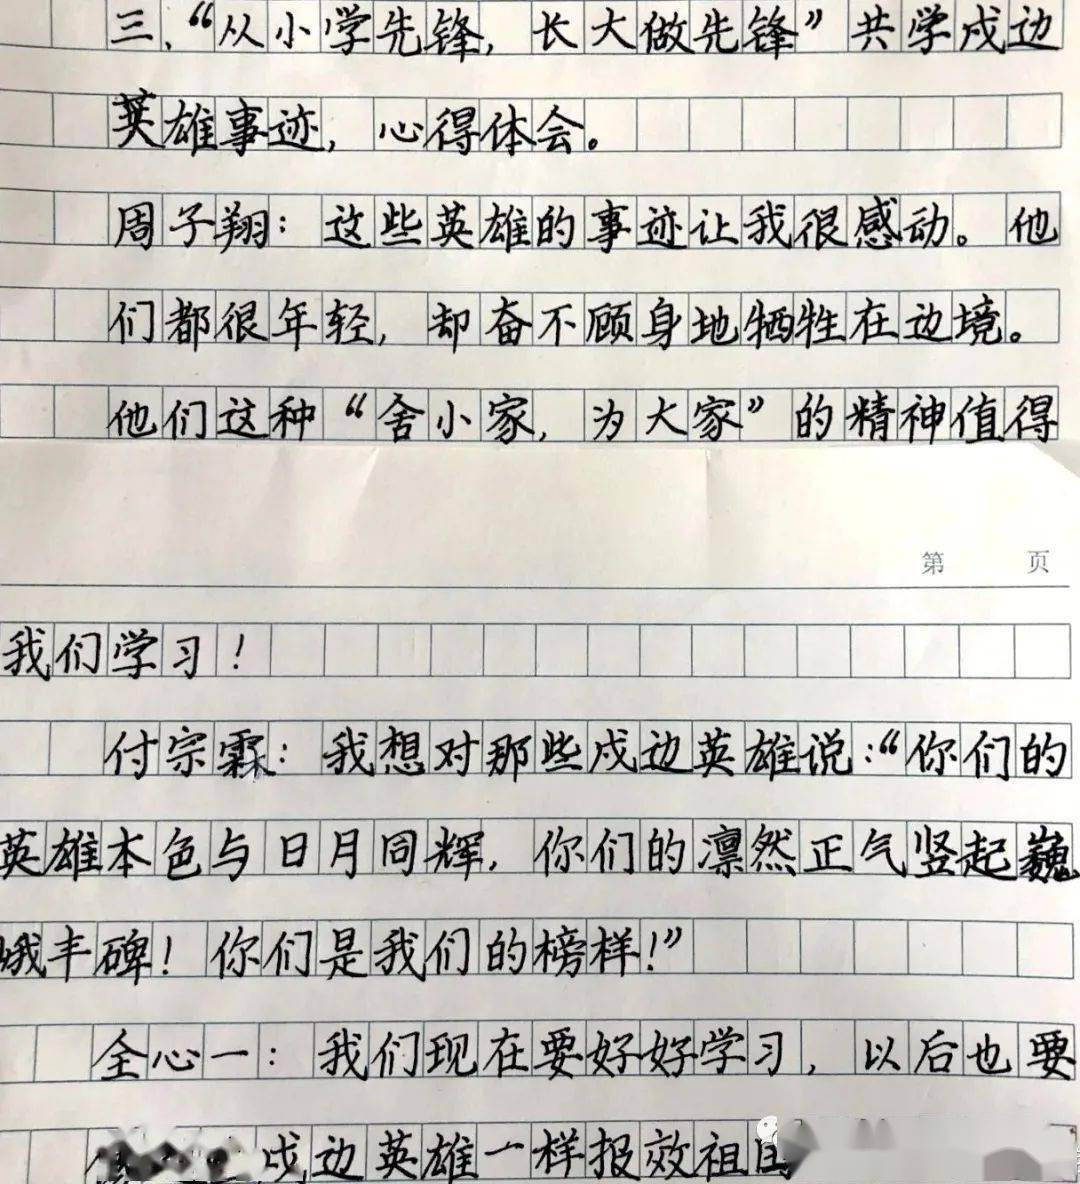 三、“从小学先锋，长大做先锋”共学戍边
英雄事迹，心得体会。
周子翔：这些英雄的事迹让我很感动。他
们都很年轻，却奋不顾身地牺牲在边境。
他们这种“舍小家，为大家”的精神值得
第 页
我们学习！
付宗霖：我想对那些戍边英雄说：“你们的
英雄本色与日月同辉，你们的凛然正气竖起巍
峨丰碑！你们是我们的榜样！”
全心一：我们现在要好好学习，以后也要
戍边英雄一样报效祖国